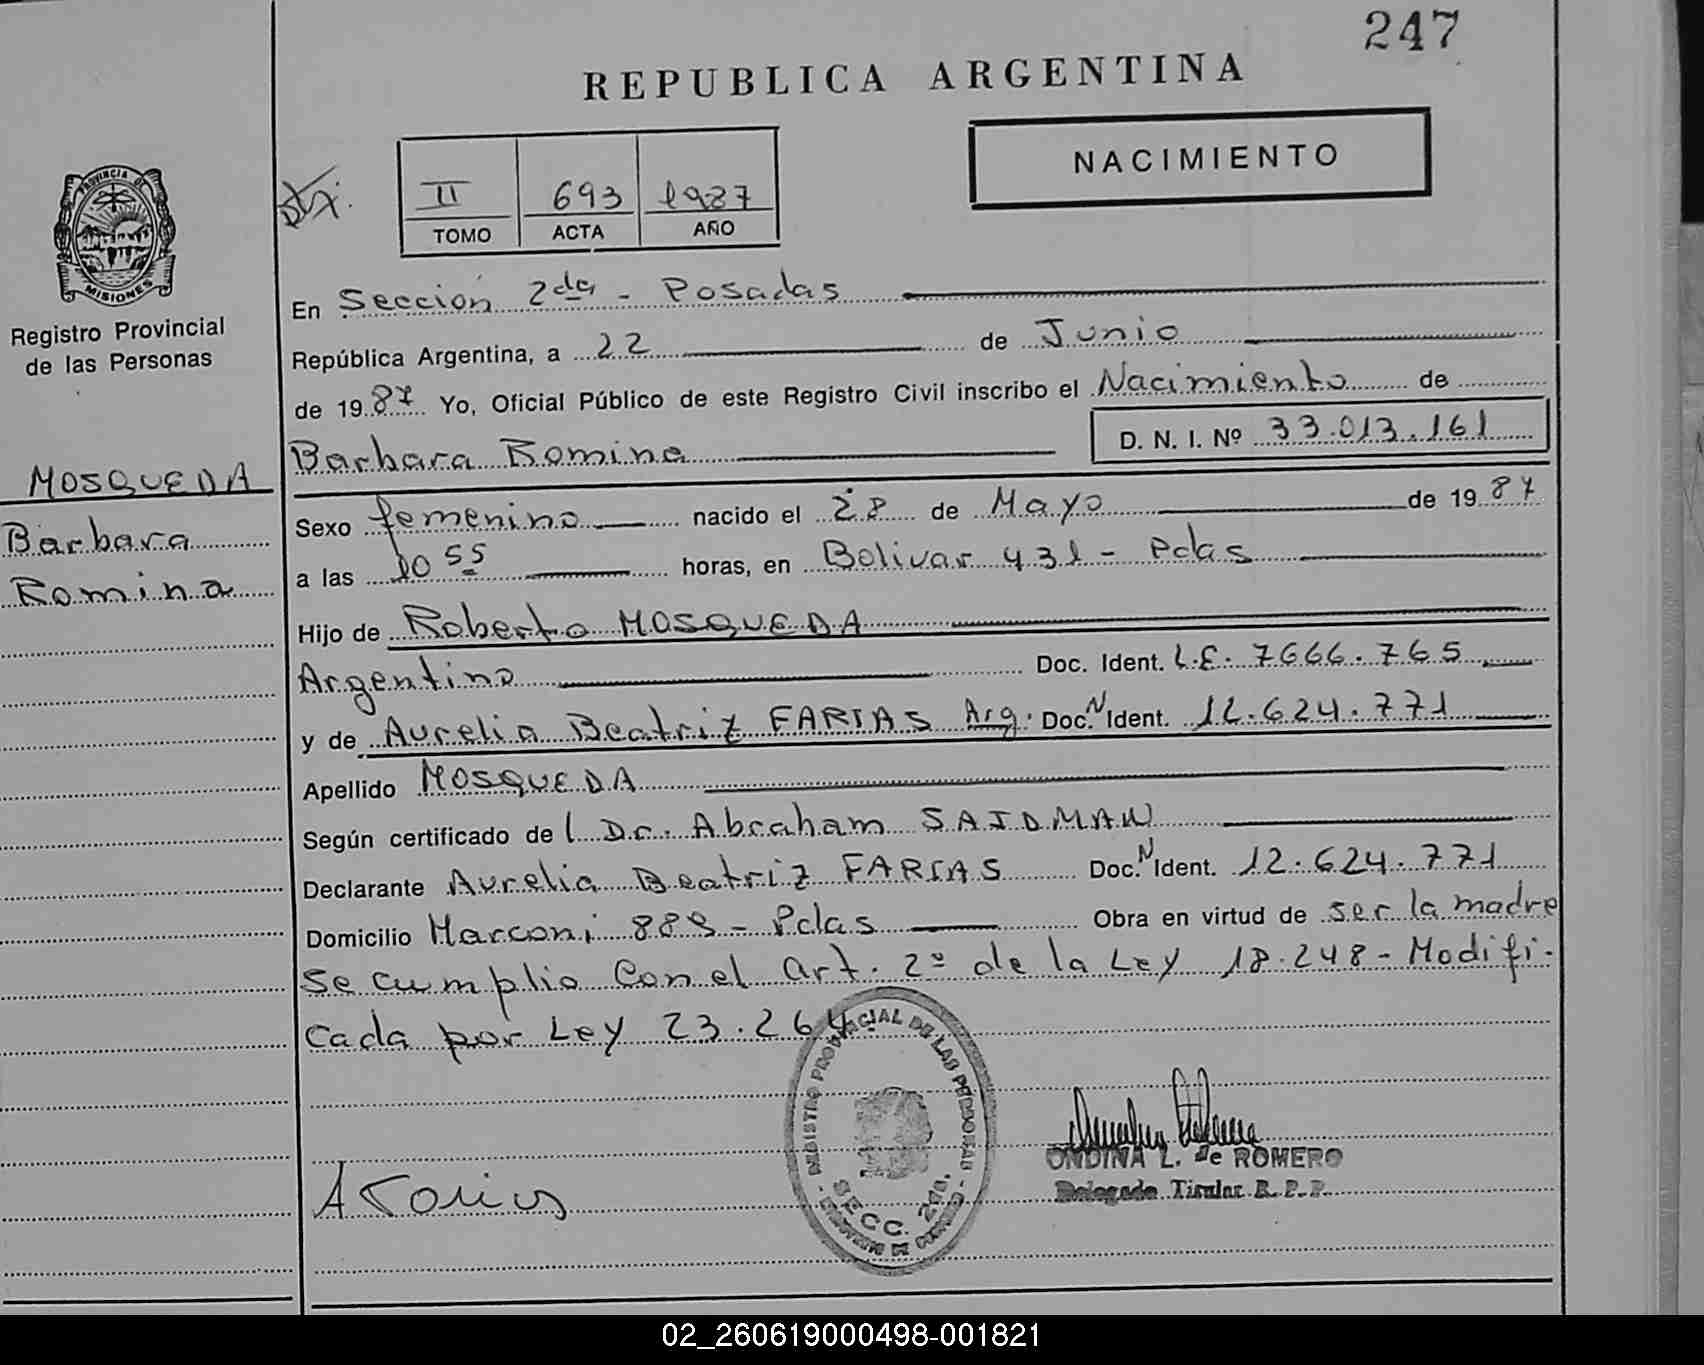 247
REPUBLICA ARGENTINA
NACIMIENTO
II 693 1987
TOMO ACTA AÑO
PROVINCIA DE
MISIONES
Registro Provincial
de las Personas
MOSQUEDA
Barbara
Romina
En Sección 2da - Posadas
República Argentina, a 22 de Junio
de 1987 Yo, Oficial Público de este Registro Civil inscribo el Nacimiento de
Barbara Romina D. N. I. Nº 33.013.161
Sexo femenino nacido el 28 de Mayo de 1987
a las 10 55 horas, en Bolivar 431 - Pdas
Hijo de Roberto MOSQUEDA
Argentino Doc. Ident. L.E. 7666.765
y de Aurelia Beatriz FARIAS Arg. Doc. N Ident. 12.624.771
Apellido MOSQUEDA
Según certificado de l Dr. Abraham SAIDMAN
Declarante Aurelia Beatriz FARIAS Doc. N Ident. 12.624.771
Domicilio Marconi 889 - Pdas Obra en virtud de ser la madre
Se cumplio con el art. 2º de la Ley 18.248 - Modifi-
cada por Ley 23.264
REGISTRO PROVINCIAL DE LAS PERSONAS
SECC. 2da.
ONDINA L. de ROMERO
Delegada Titular R. P. P.
02_260619000498-001821